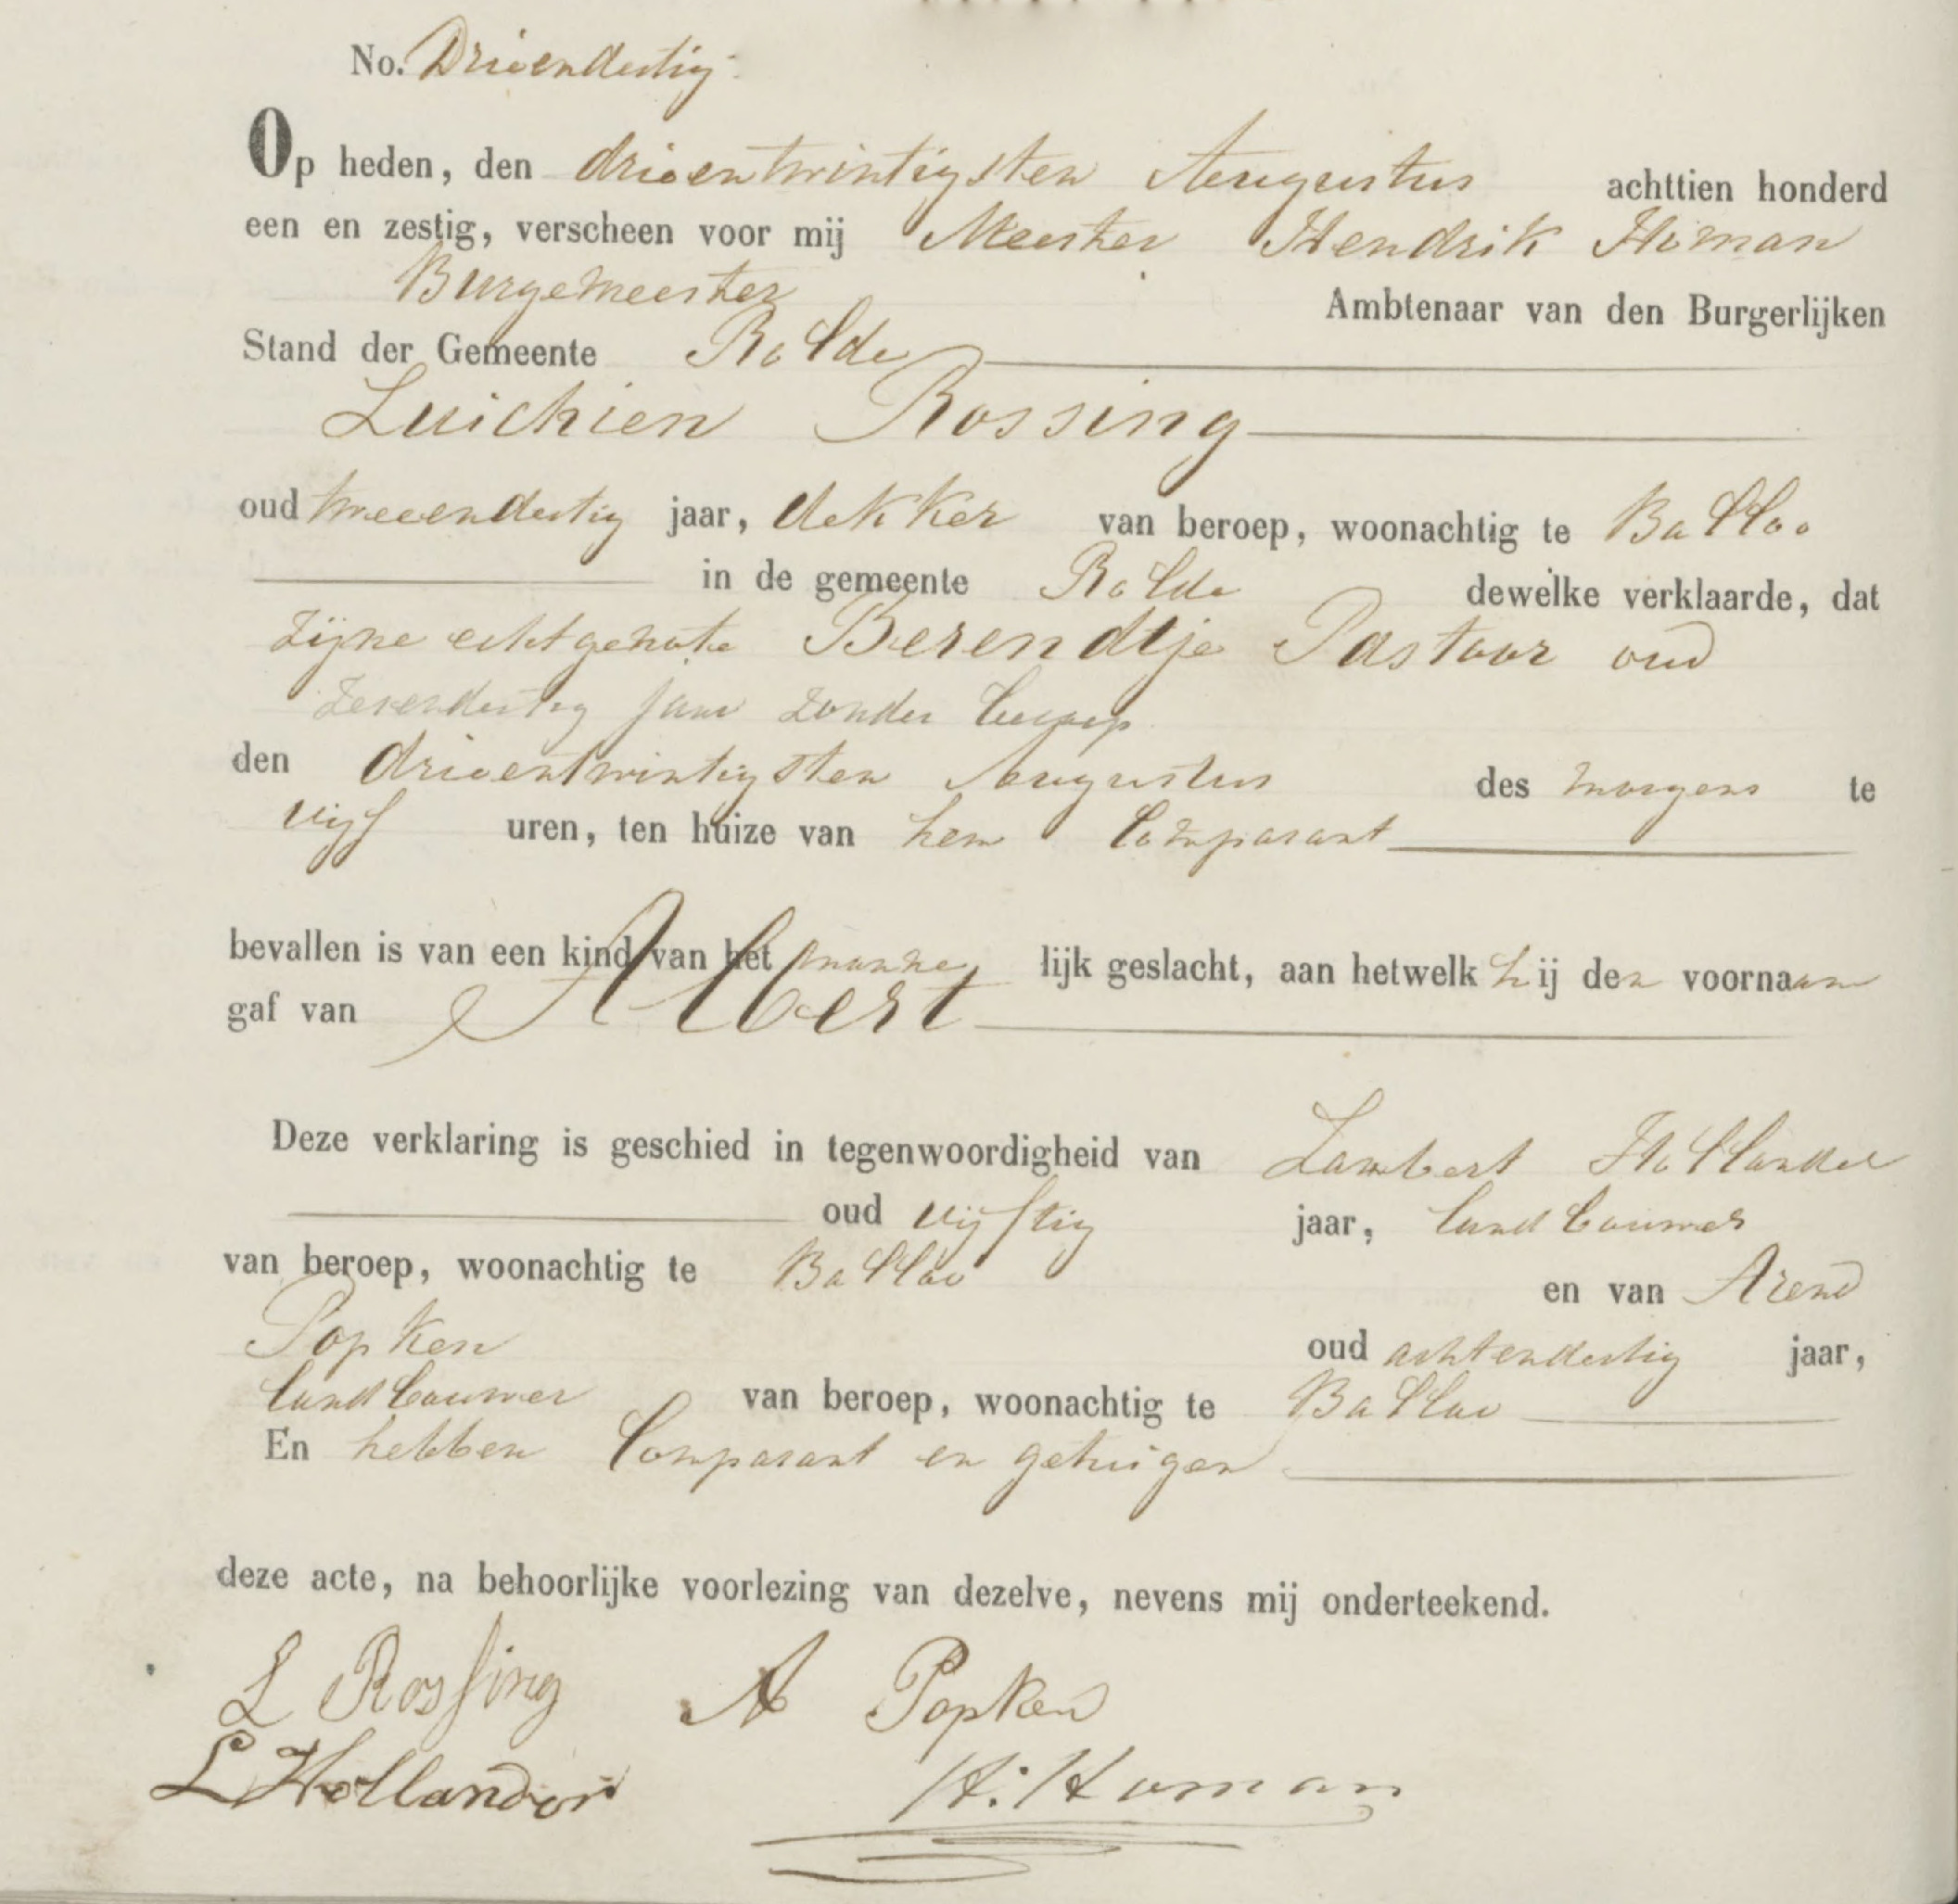 No. Drieendertig
Op heden, den drieentwintigsten Augustus achttien honderd
een en zestig, verscheen voor mij Meester Hendrik Homan
Burgemeester Ambtenaar van den Burgerlijken
Stand der Gemeente Rolde
Luichien Rossing
oud tweeendertig jaar, dekker van beroep, woonachtig te Balloo
in de gemeente Rolde dewelke verklaarde, dat
zijne echtgenote Berendtje Pastoor oud
zevendertig jaar zonder beroep
den drieentwintigsten Augustus des morgens te
vijf uren, ten huize van hem Comparant
bevallen is van een kind van het manne lijk geslacht, aan hetwelk hij den voornaam
gaf van Albert
Deze verklaring is geschied in tegenwoordigheid van Lambert Hollander
oud vijftig jaar, landbouwer
van beroep, woonachtig te Balloo en van Arend
Popken oud achtendertig jaar,
landbouwer van beroep, woonachtig te Balloo
En hebben Comparant en getuigen
deze acte, na behoorlijke voorlezing van dezelve, nevens mij onderteekend.
L Rossing A Popken
L Hollander H: Homan